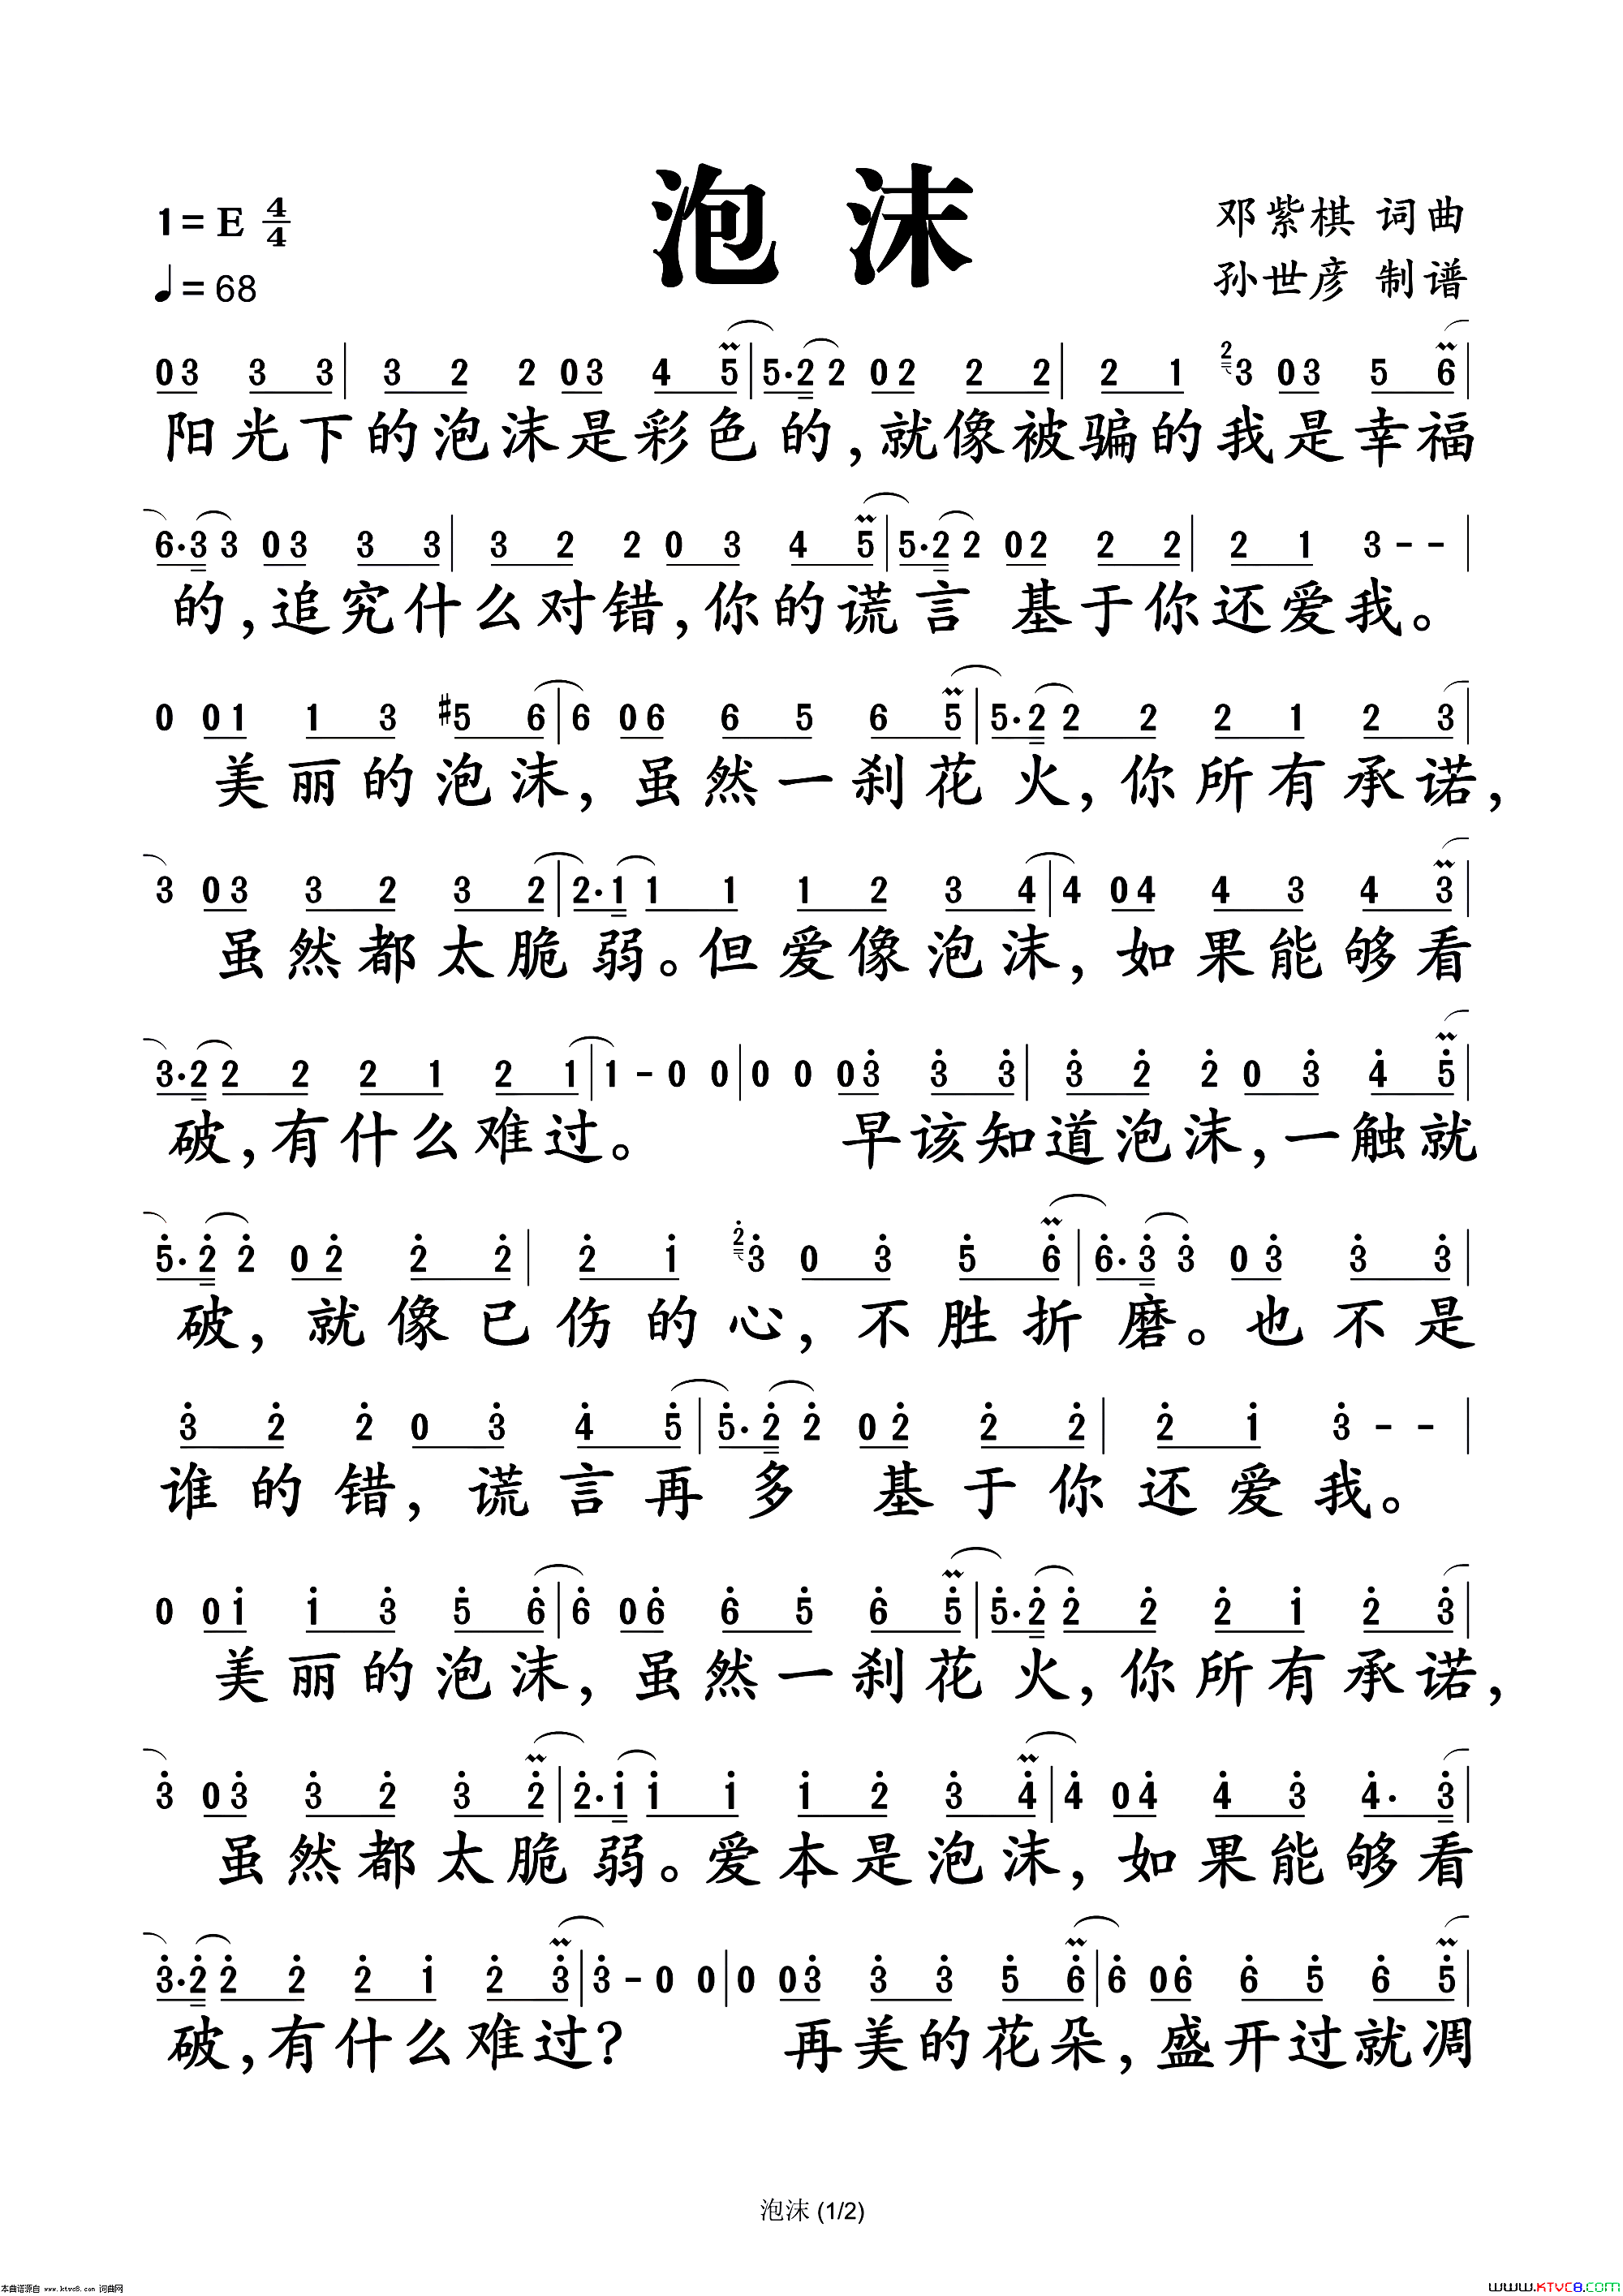 泡沫
1=E 4/4
♩=68
邓紫棋 词曲
孙世彦 制谱
03 3 3| 3 2 2 03 4 5|5·2 2 02 2 2| 2 1 23 03 5 6|
阳光下的泡沫是彩色的,就像被骗的我是幸福
6·3 3 03 3 3| 3 2 2 0 3 4 5|5·2 2 02 2 2| 2 1 3--|
的,追究什么对错,你的谎言 基于你还爱我。
0 01 1 3 #5 6|6 06 6 5 6 5|5·2 2 2 2 1 2 3|
美丽的泡沫,虽然一刹花火,你所有承诺,
3 03 3 2 3 2|2·1 1 1 1 2 3 4|4 04 4 3 4 3|
虽然都太脆弱。但爱像泡沫,如果能够看
3·2 2 2 2 1 2 1|1-0 0|0 0 03 3 3| 3 2 2 0 3 4 5|
破,有什么难过。 早该知道泡沫,一触就
5·2 2 02 2 2| 2 1 23 0 3 5 6|6·3 3 03 3 3|
破,就像已伤的心,不胜折磨。也不是
3 2 2 0 3 4 5|5·2 2 02 2 2| 2 1 3--|
谁的错,谎言再多 基于你还爱我。
0 01 1 3 5 6|6 06 6 5 6 5|5·2 2 2 2 1 2 3|
美丽的泡沫,虽然一刹花火,你所有承诺,
3 03 3 2 3 2|2·1 1 1 1 2 3 4|4 04 4 3 4· 3|
虽然都太脆弱。爱本是泡沫,如果能够看
3·2 2 2 2 1 2 3|3-0 0|0 03 3 3 5 6|6 06 6 5 6 5|
破,有什么难过? 再美的花朵,盛开过就凋
泡沫 (1/2)
本曲谱源自 www.ktvc8.com 词曲网
www.KTVC8.com